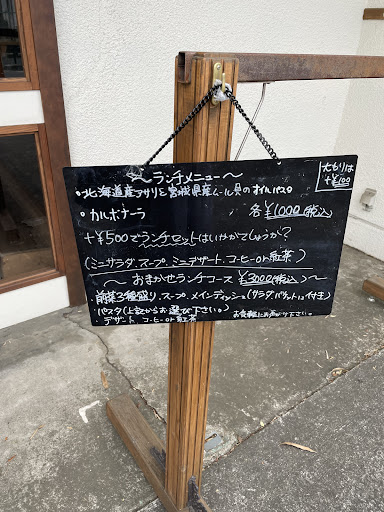 〜ランチメニュー〜
大もりは
+¥100
・北海道産アサリと宮城県産ムール貝のオイルパスタ
・カルボナーラ 各¥1000(税込)
+¥500でランチセットはいかがでしょうか?
(ミニサラダ.スープ.ミニデザート.コーヒーor紅茶)
〜おまかせランチコース ¥3000(税込)〜
・前菜3種盛り.スープ.メインディッシュ(サラダ.バケット付き)
・パスタ(上記からお選び下さい。)
・デザート.コーヒーor紅茶
お気軽にお声がけ下さい。